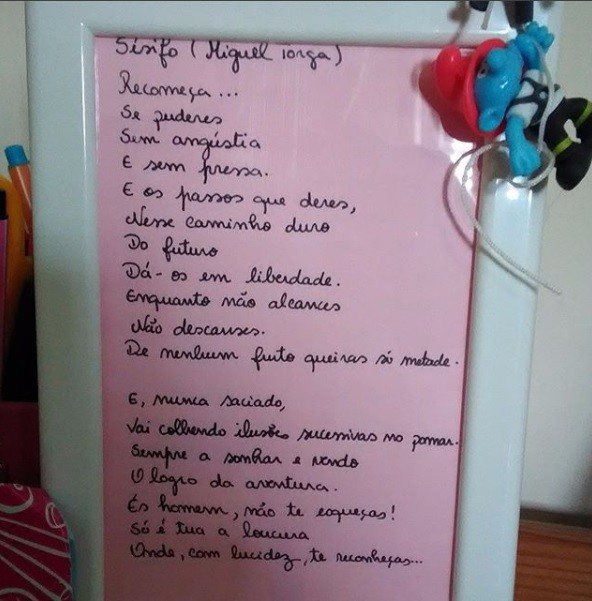 Sísifo (Miguel Torga)
Recomeça...
Se puderes
Sem angústia
E sem pressa.
E os passos que deres,
Nesse caminho duro
Do futuro
Dá-os em liberdade.
Enquanto não alcances
Não descanses.
De nenhum fruto queiras só metade.
E, nunca saciado,
Vai colhendo ilusões sucessivas no pomar.
Sempre a sonhar e vendo
O logro da aventura.
És homem, não te esqueças!
Só é tua a loucura
Onde, com lucidez, te reconheças...